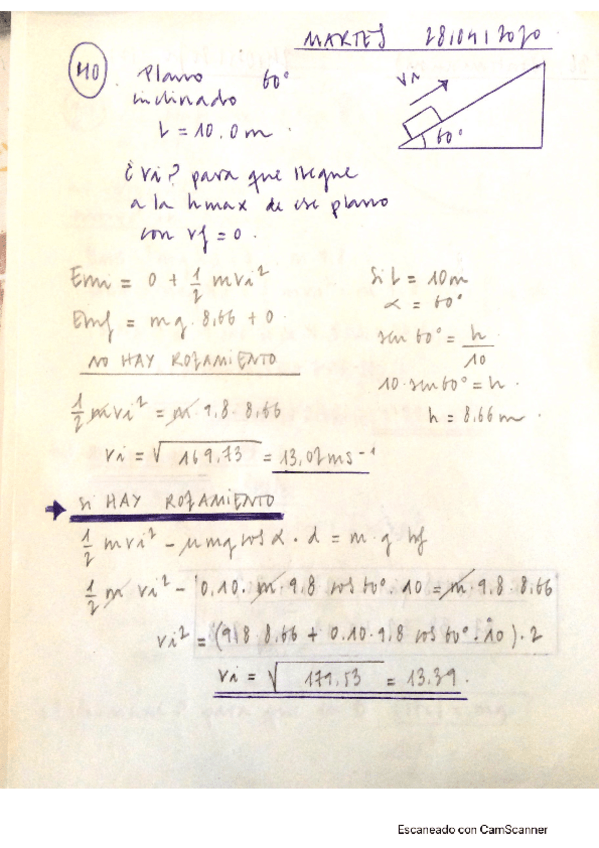 MARTES 28/04/2020
40 Plano 60°
inclinado
L = 10.0 m.
Vi
60°
¿Vi? para que llegue
a la hmax de ese plano
con vf = 0.
Emi = 0 + 1/2 mvi²
Emf = mg. 8,66 + 0.
NO HAY ROZAMIENTO
1/2 mvi² = m. 9.8. 8.66
vi = √169.73 = 13,02 ms⁻¹
Si L = 10m
α = 60°
sen 60° = h/10
10. sen 60° = h.
h = 8,66 m.
→ SI HAY ROZAMIENTO
1/2 mvi² - μmg cos α . d = m. g hf
1/2 m vi² - 0.10. m. 9.8 cos 60°. 10 = m. 9.8. 8.66
vi² = (9.8 8.66 + 0.10. 9.8 cos 60°. 10). 2
vi = √179.53 = 13.39.
Escaneado con CamScanner